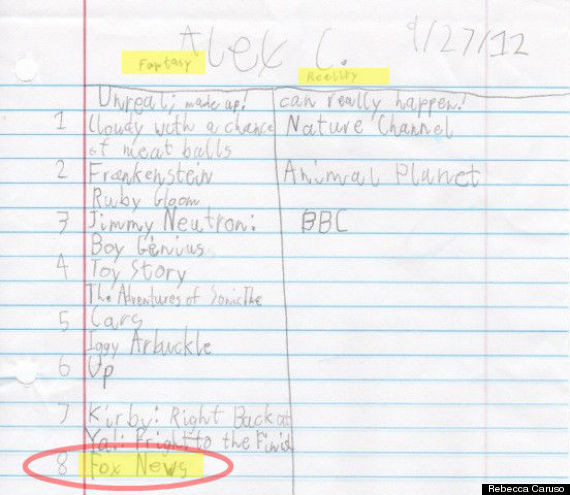 Alex C. 9/27/12
Fantasy Reality
Unreal; made up! can really happen!
1 Cloudy with a chance Nature Channel
of meat balls
2 Frankenstein Animal Planet
Ruby Gloom
3 Jimmy Neutron: BBC
Boy Genius
4 Toy Story
The Adventures of Sonic The
5 Cars
Iggy Arbuckle
6 Up
7 Kirby: Right Back at
Ya!: Fright to the Finish
8 Fox News
Rebecca Caruso